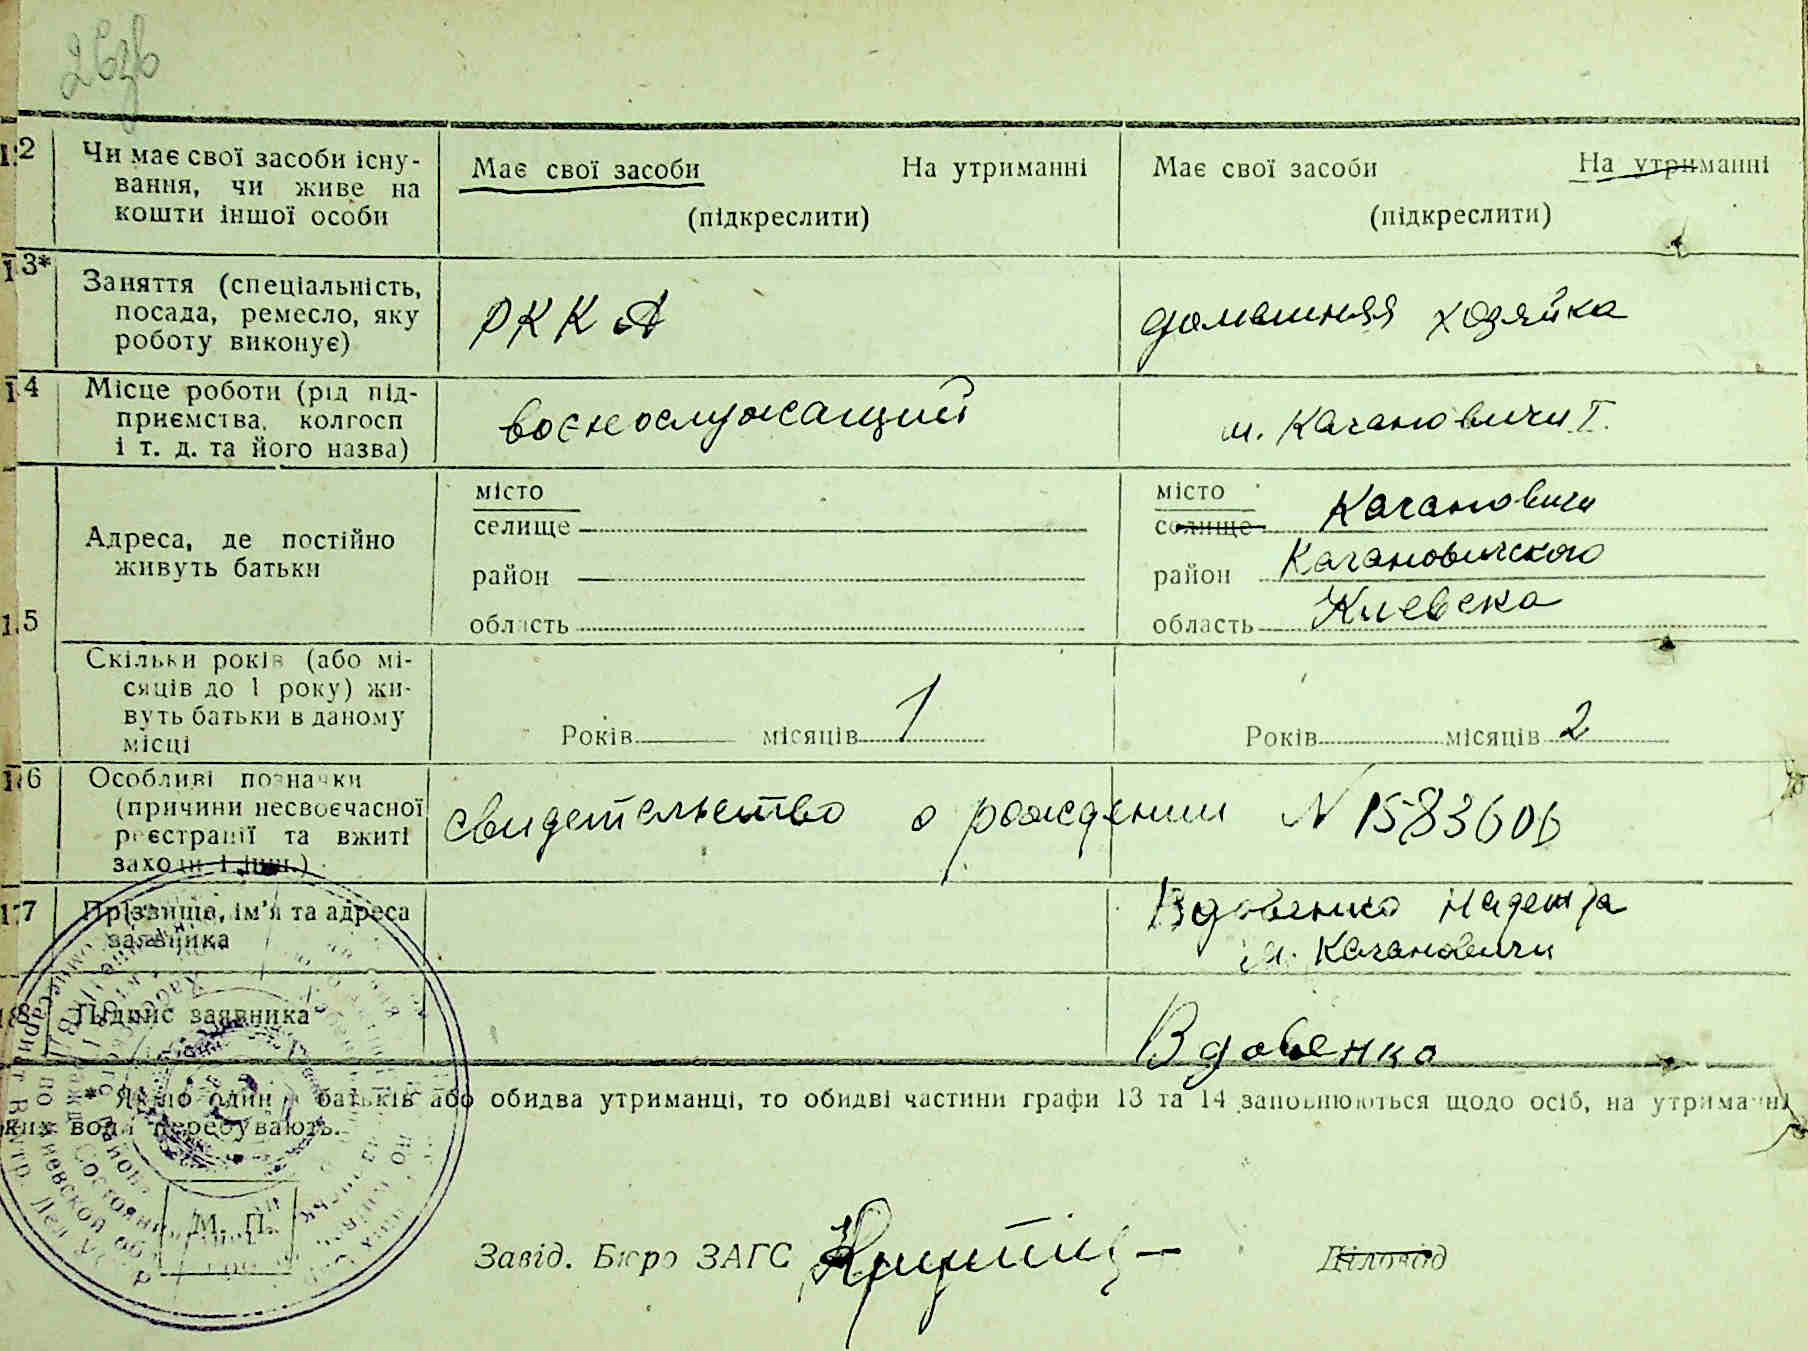 12 Чи має свої засоби існу-
вання, чи живе на
кошти іншої особи
Має свої засоби На утриманні
(підкреслити)
Має свої засоби На утриманні
(підкреслити)
13* Заняття (спеціальність,
посада, ремесло, яку
роботу виконує)
РККА
домашняя хозяйка
14 Місце роботи (рід під-
приємства, колгосп
і т. д. та його назва)
воєнослужащий
м. Кагановичи I.
15 Адреса, де постійно
живуть батьки
місто
селище
район
область
місто Кагановичи
селище
район Кагановичского
область Киевска
Скільки років (або мі-
сяців до 1 року) жи-
вуть батьки в даному
місці
Років місяців 1
Років місяців 2
16 Особливі позначки
(причини несвоєчасної
реєстрації та вжиті
заходи і інш.)
свидетельство о рождении N 1583606
17 Прізвище, ім'я та адреса
заявника
Вдовенко Надежда
м. Кагановичи
18 Підпис заявника
Вдовенко
* Якщо один з батьків або обидва утриманці, то обидві частини графи 13 та 14 заповнюються щодо осіб, на утриманні
яких вони перебувають.
М. П.
Завід. Бюро ЗАГС
Діловод